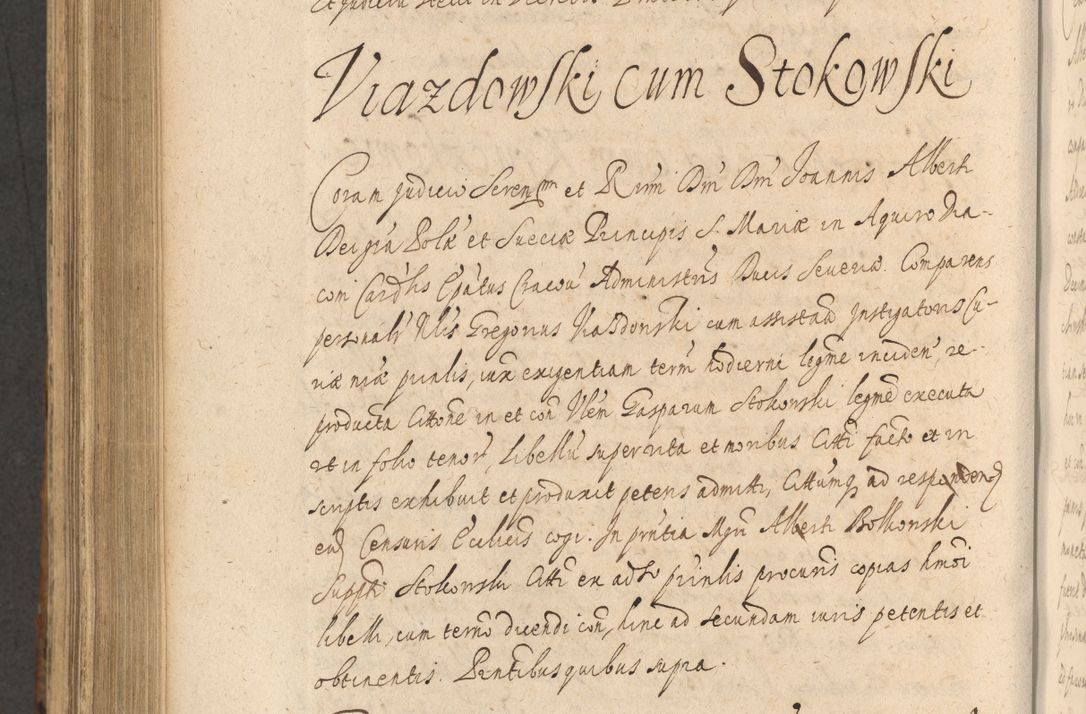 Viazdowski cum Stokowski
Coram Judicio Seren͂m et R͂mi Dn͂i Dn͂i Joannis Alberti
Dei gr͂a Pol͂æ et Sueciæ Principis S. Mariæ in Aquiro Dia-
coni Card͂lis Ep͂atus Cracov͂ Administr͂is Ducis Severiæ. Comparens
personal͂r Nl͂is Gregorius Viazdonski cum assisten͂a Instigatoris Cu-
riæ n͂ræ pr͂inlis, iux͂ exigentiam term͂ hodierni legm͂e inciden͂, re-
producta Citt͂one in et con͂ Nl͂em Gasparum Stokonski legm͂e executa
et in folio tenor͂, Libellu͂ super vita et moribus Citt͂i facto et in
scriptis exhibuit et produxit petens admitti, Citt͂umq͂ ad responden͂
eu͂ Censuris Eccl͂icis cogi. In pr͂ntia Mg͂ri Alberti Bolkonski
Supp͂ti Stokonski Citt͂i ex adso͂ pr͂inlis procur͂is copias hm͂oi
libelli, cum term͂o dicendi con͂, hinc ad secundam iuris petentis et
obtinentis. Pr͂ntibus quibus supra.